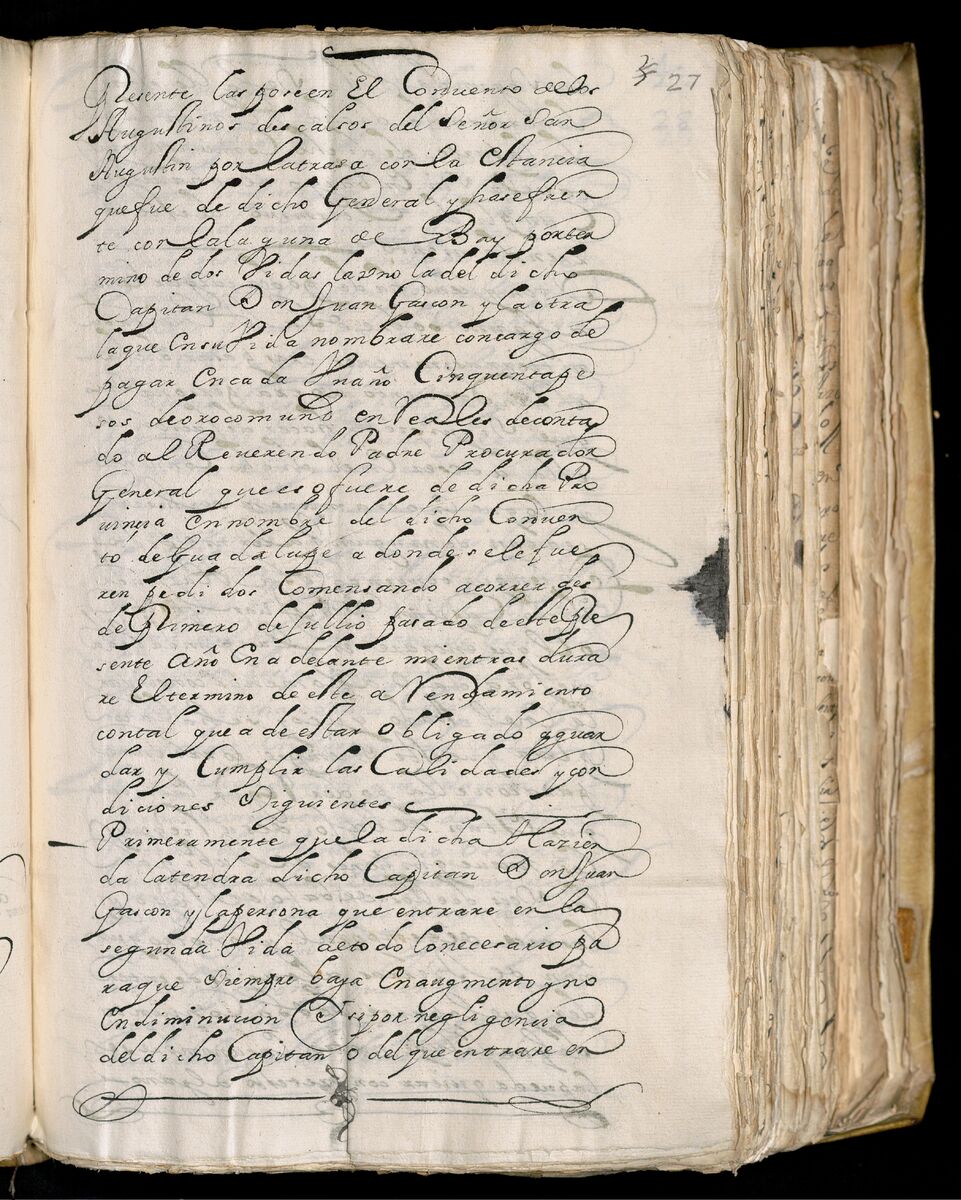 27
Presente las poseen El Conuento de los
Augustinos descalsos del Señor San
Augustin por la trasa con la estancia
que fue de dicho General y hase fren
te con la laguna de Bay por ter
mino de dos Vidas la vno la del dicho
Capitan Don Juan Gascon y la otra
la que en su Vida nombrare con cargo de
pagar en cada Vn año Cinquenta pe
sos de oro comun en Reales de conta
do al Reverendo Padre Procurador
General que es o fuere de dicha Pro
uincia en nombre del dicho Conuen
to de Guadalupe a donde se le fue
ren pedidos Comensando a correr des
de Primero de Jullio pasado de este Pre
sente Año En adelante mientras dura
re El termino de este aRendamiento
con tal que a de estar obligado a guar
dar y Cumplir las Calidades y con
diciones Siguientes
Primeramente que la dicha Hazien
da la tendra dicho Capitan Don Juan
Gascon y la persona que entrare en la
segunda Vida de todo lo necesario pa
ra que siempre baya En augmento y no
En diminucion Y si por negligencia
del dicho Capitan o del que entrare en